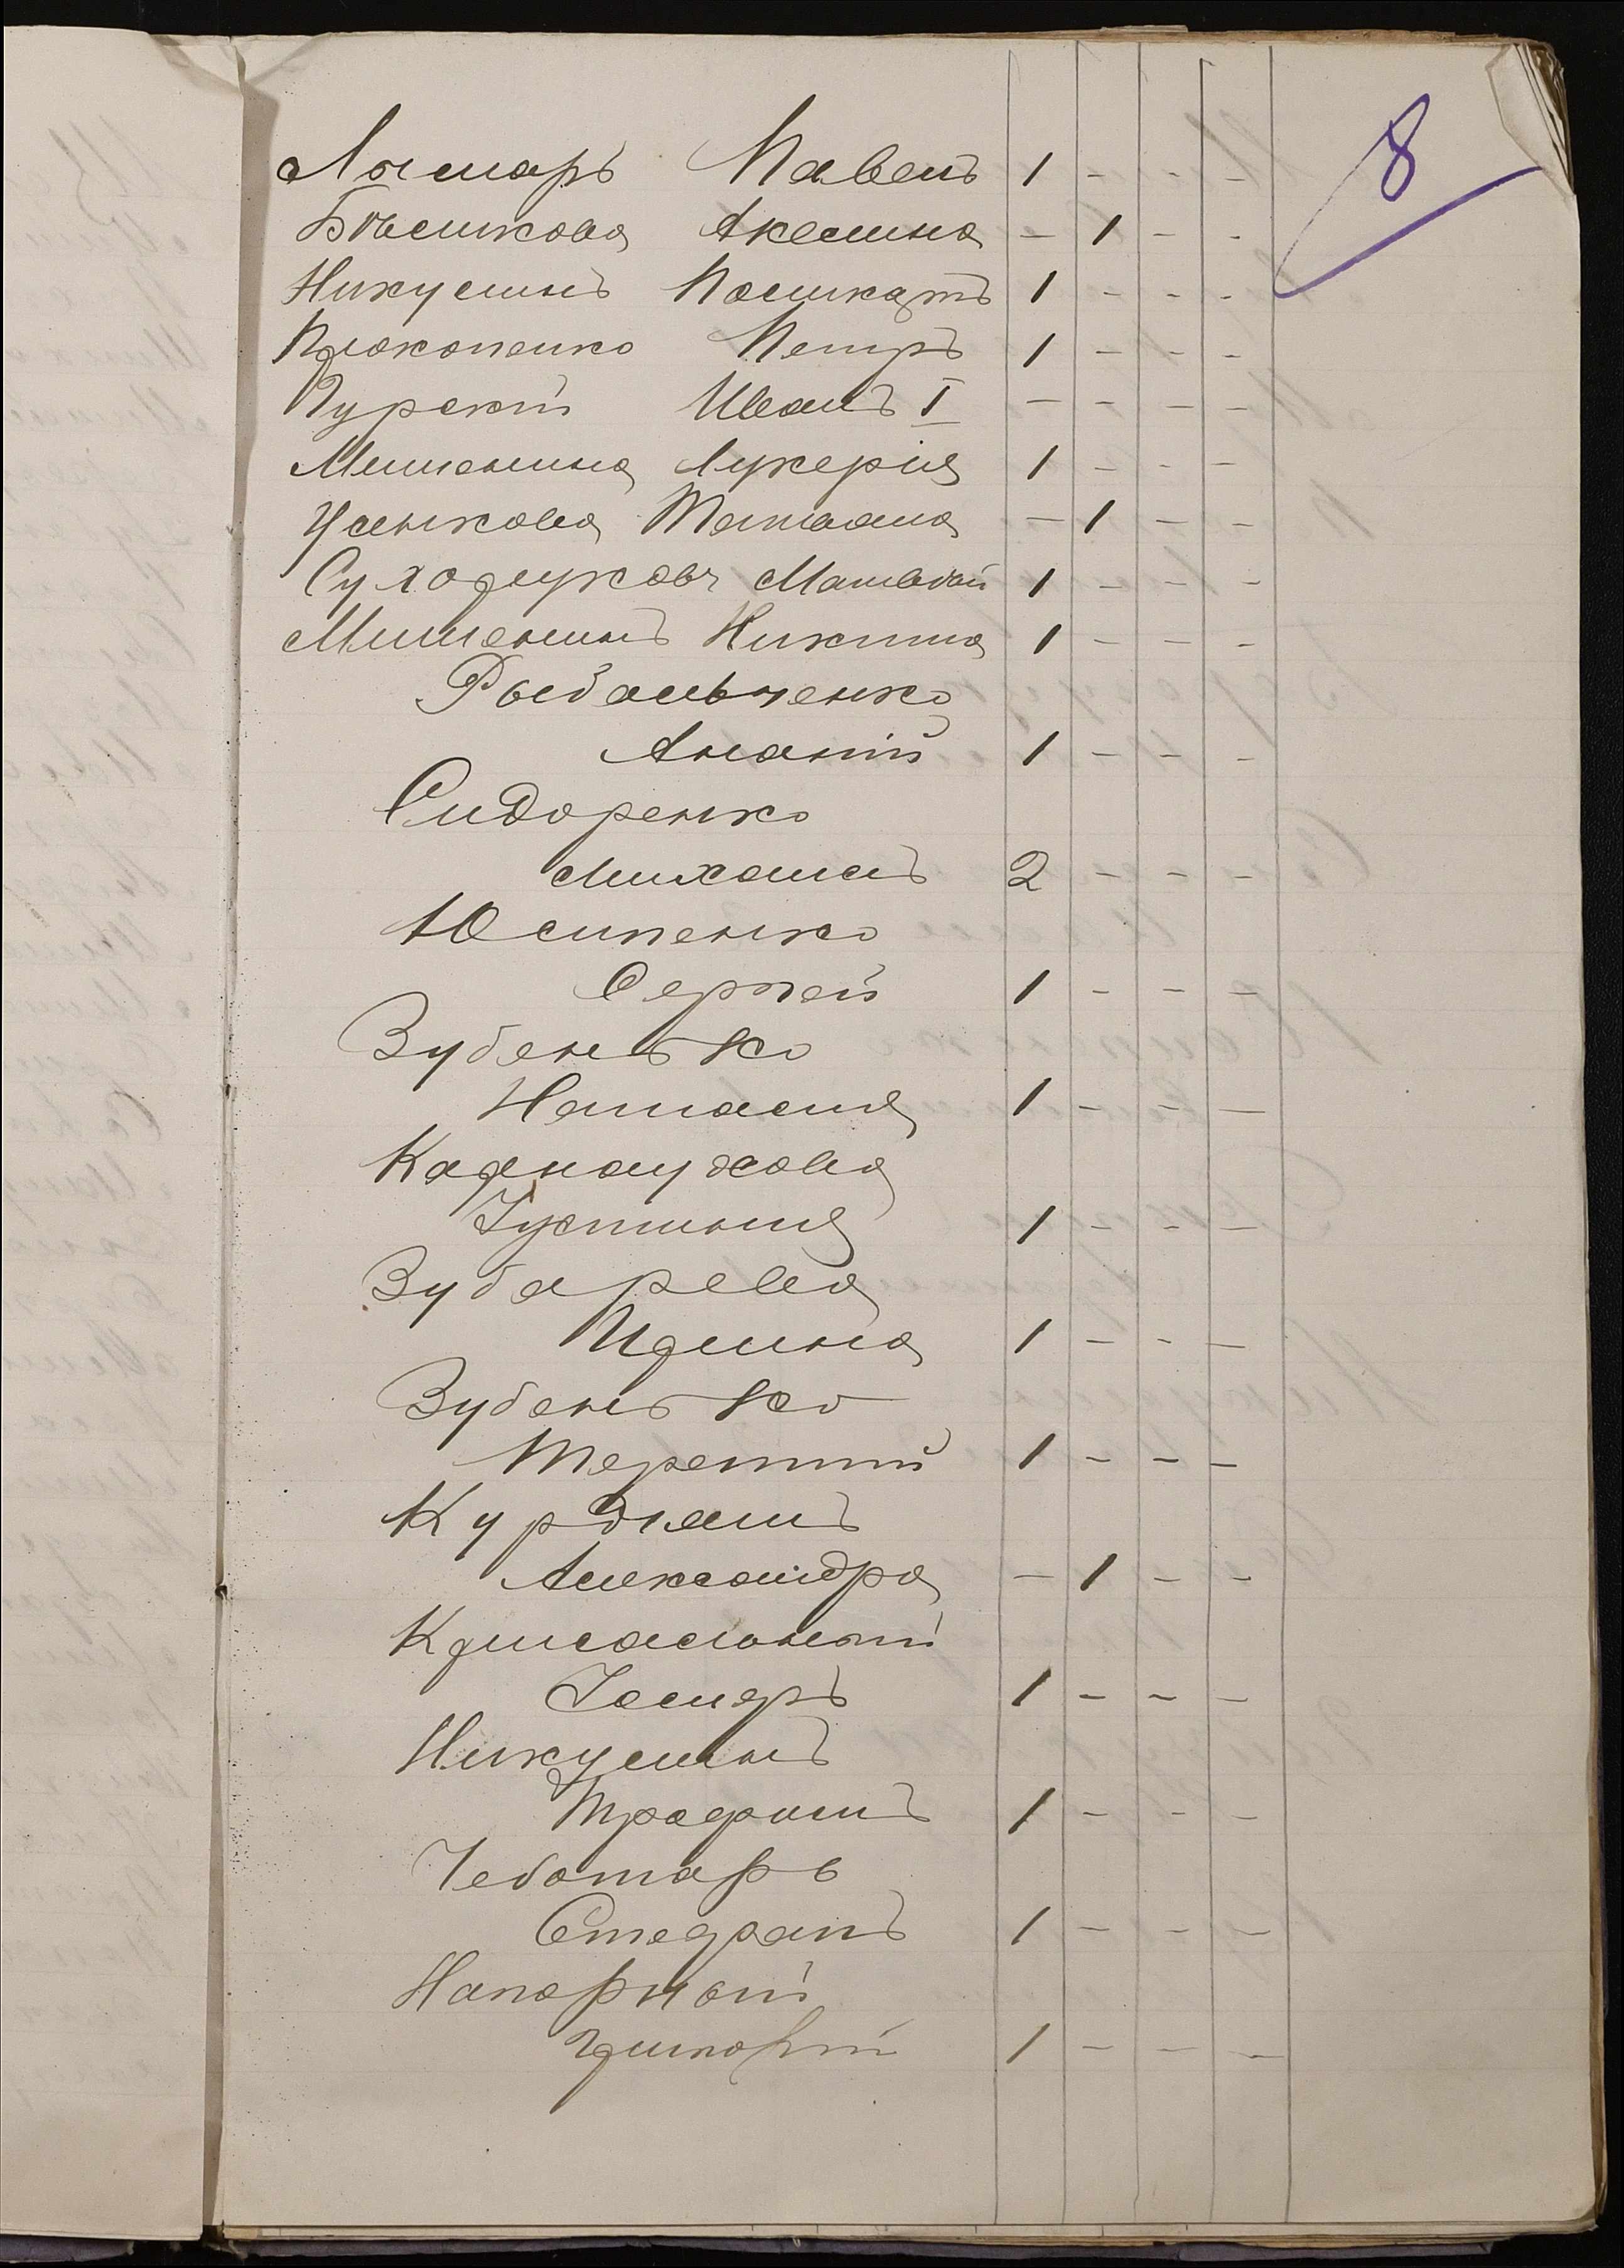 8
Лymарь Павелъ 1 - - -
Бѣликова Акелина - 1 - -
Никулинъ Поликарпъ 1 - - -
Прокопенко Петръ 1 - - -
Гурскій Иванъ I - - - -
Мишенина Лукерія 1 - - -
Усенкова Татіана - 1 - -
Суходуковъ Матвѣй 1 - - -
Мишенинъ Никита 1 - - -
Рыбальченко
Ананій 1 - - -
Сидоренко
Михаилъ 2 - - -
Юсипенко
Сергѣй 1 - - -
Зубенько
Наталія 1 - - -
Карнаухова
Іустинія 1 - - -
Зубарева
Ирина 1 - - -
Зубенько
Терентій 1 - - -
Курдгашъ
Александра - 1 - -
Крисальный
Іосифъ 1 - - -
Никулинъ
Трофимъ 1 - - -
Чеботарь
Стефанъ 1 - - -
Напорный
Григорій 1 - - -